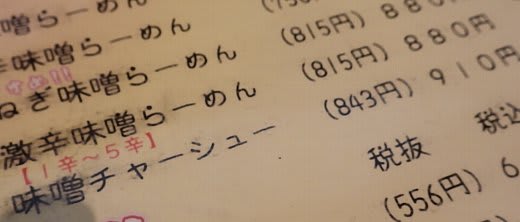 噌らーめん
味噌らーめん
ねぎ味噌らーめん (815円) 880
激辛味噌らーめん (815円) 880円
【1辛～5辛】
味噌チャーシュー (843円) 910円
税抜 税込
(556円) 6